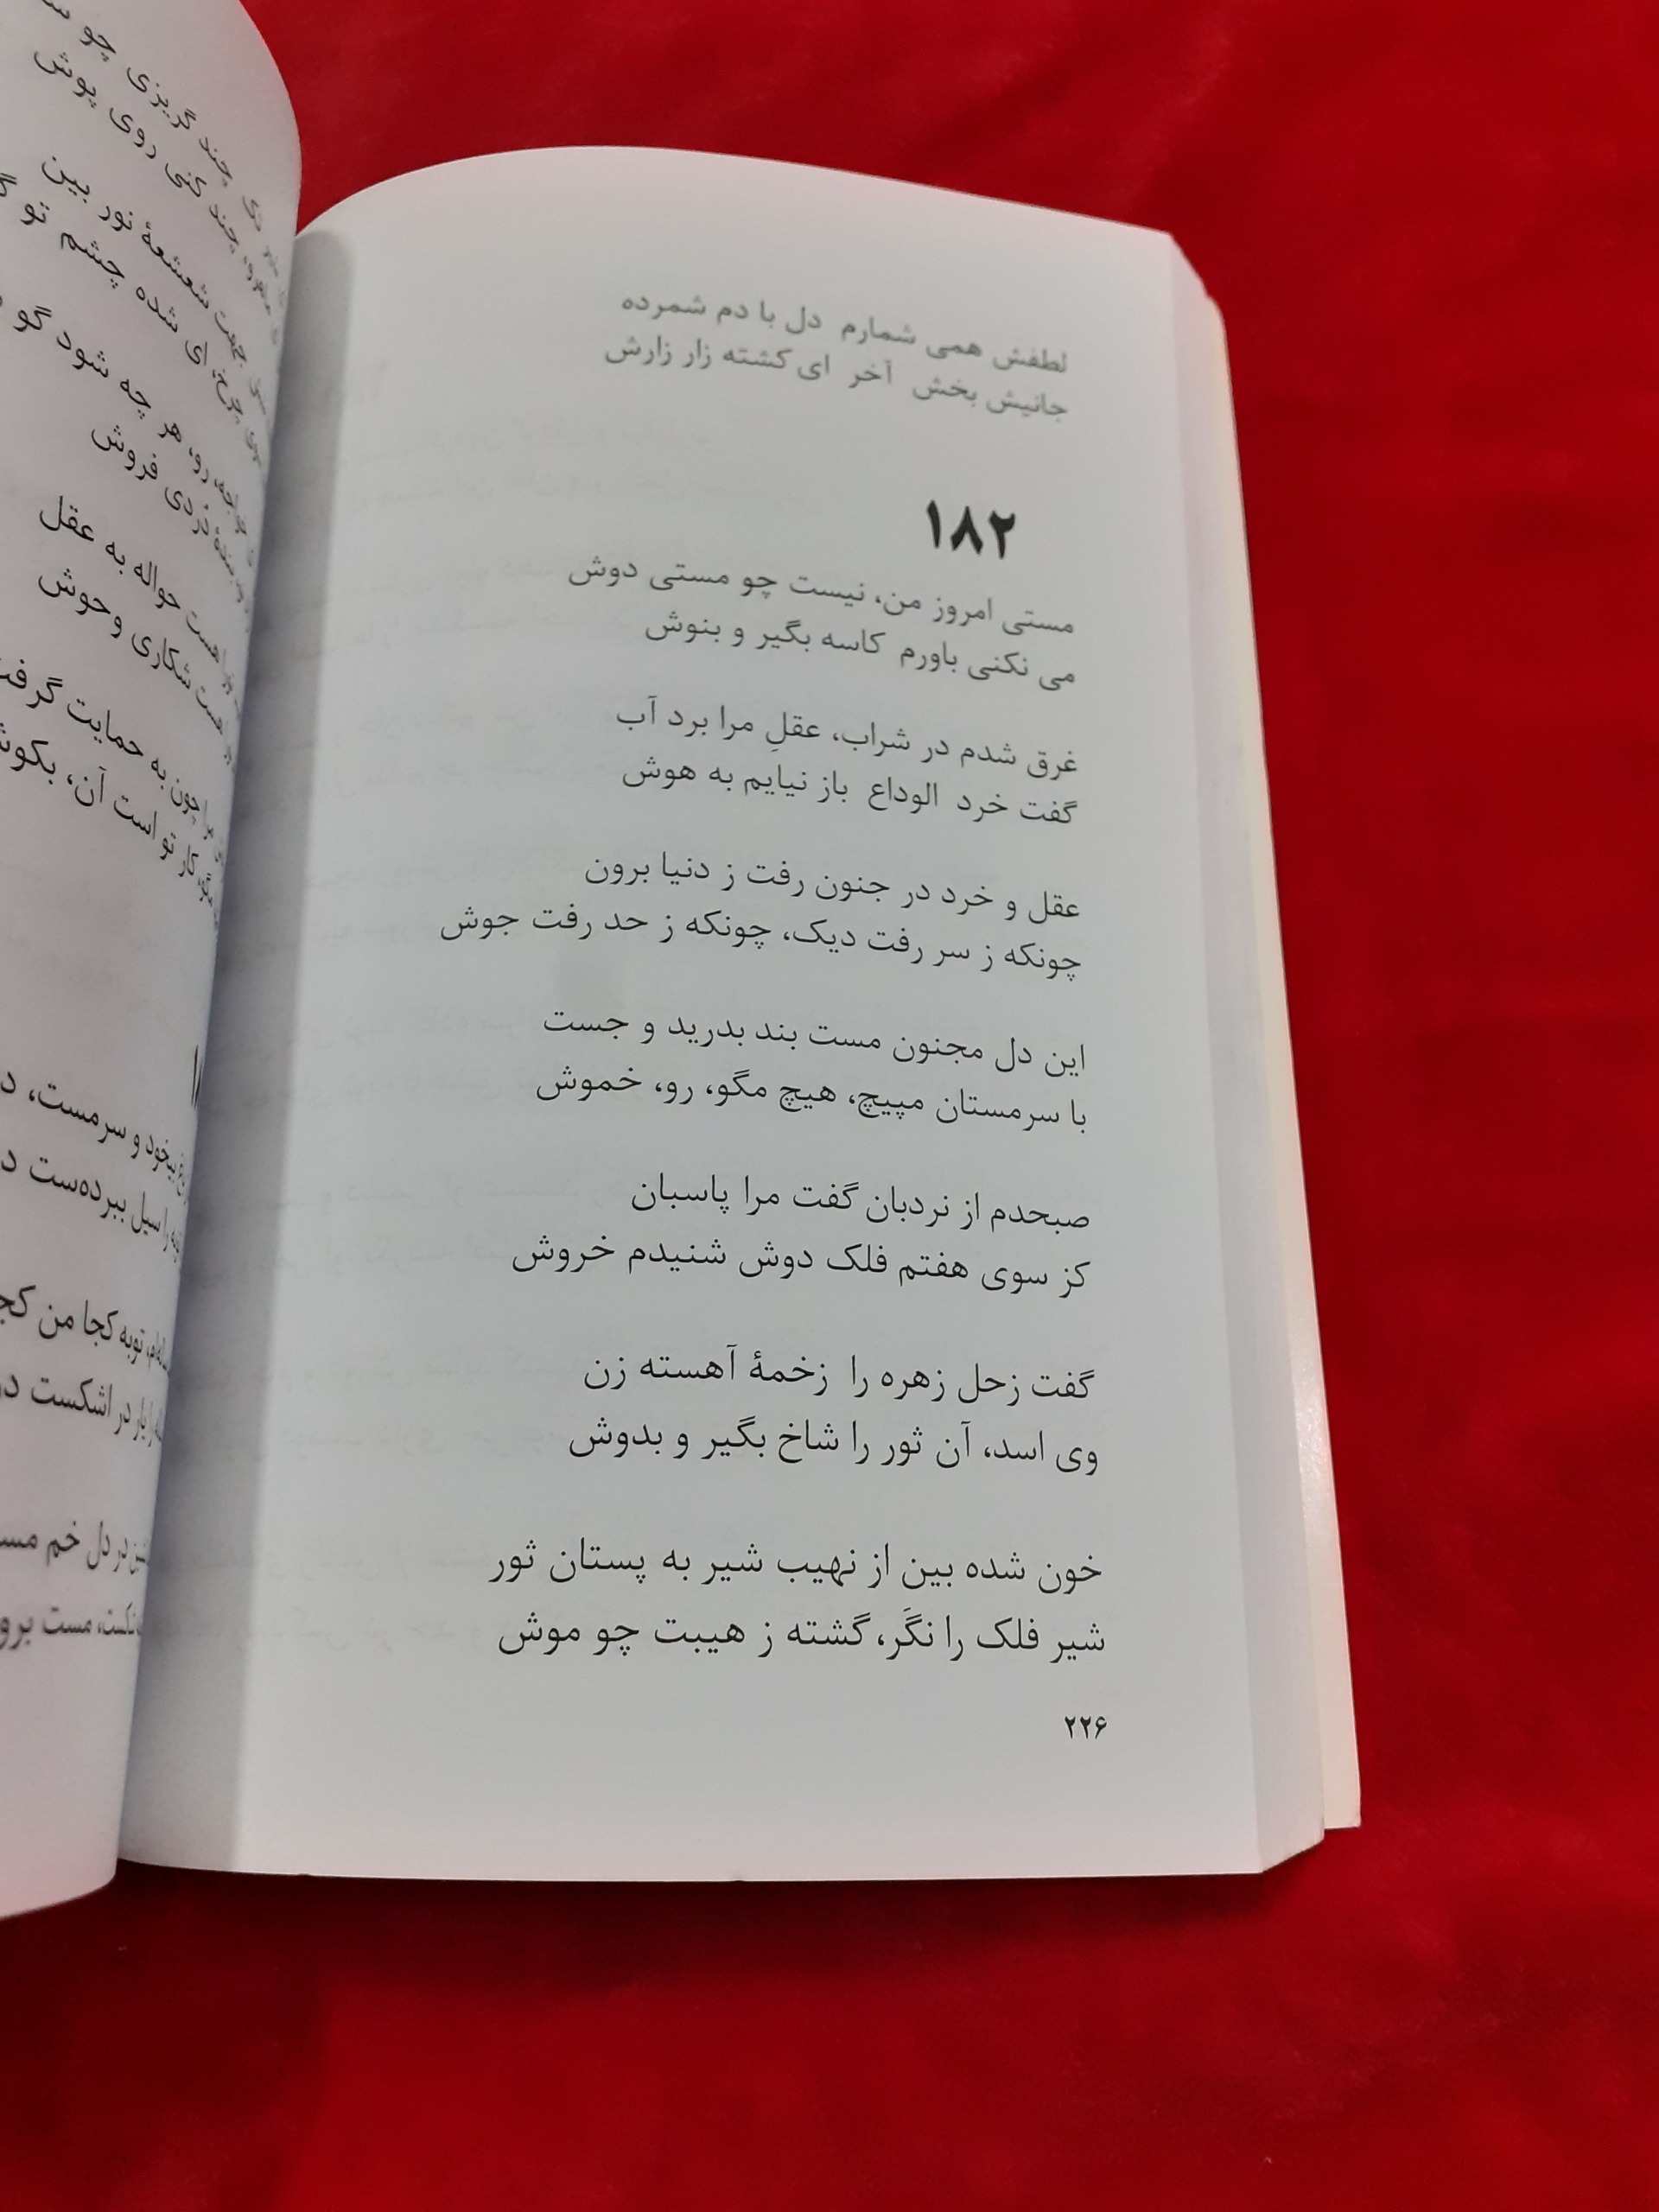 لطفش همی شمارم دل با دم شمرده
جانیش بخش آخر ای کشته زار زارش
۱۸۲
مستی امروز من، نیست چو مستی دوش
می نکنی باورم کاسه بگیر و بنوش
غرق شدم در شراب، عقلِ مرا برد آب
گفت خرد الوداع باز نیایم به هوش
عقل و خرد در جنون رفت ز دنیا برون
چونکه ز سر رفت دیک، چونکه ز حد رفت جوش
این دل مجنون مست بند بدرید و جست
با سرمستان مپیچ، هیچ مگو، رو، خموش
صبحدم از نردبان گفت مرا پاسبان
کز سوی هفتم فلک دوش شنیدم خروش
گفت زحل زهره را زخمهٔ آهسته زن
وی اسد، آن ثور را شاخ بگیر و بدوش
خون شده بین از نهیب شیر به پستان ثور
شیر فلک را نگَر، گشته ز هیبت چو موش
۲۲۶
چند گریزی چو
چند کنی روی پوش
شعشعهٔ نور بین
ای شده چشم تو
رو، هر چه شود گو
دُردی فروش
هست حواله به عقل
هست شکاری وحوش
چون به حمایت گرفت
کار تو است آن، بکوش
بیخود و سرمست،
را سیل ببرده‌ست
توبه کجا من
یار در اشکست
در دل خم
مست